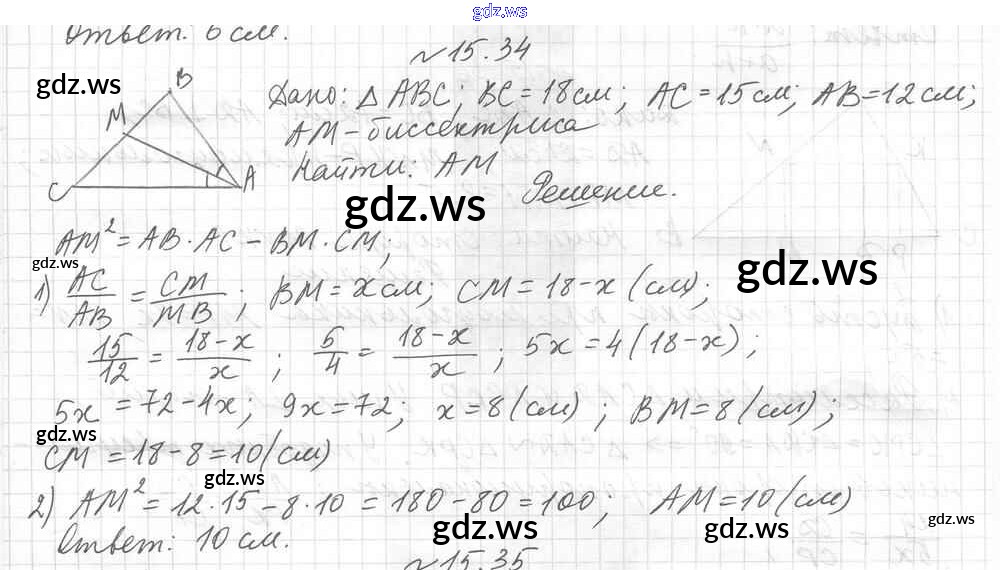 gdz.ws
Ответ: 6 см.
№ 15.34
gdz.ws
B
M
C
A
Дано: △ ABC; BC = 18 см; AC = 15 см; AB = 12 см;
AM - биссектриса
Найти: AM
gdz.ws
Решение.
AM² = AB · AC - BM · CM;
gdz.ws
gdz.ws
1) AC/AB = CM/MB; BM = x см; CM = 18 - x (см);
15/12 = (18 - x)/x; 5/4 = (18 - x)/x; 5x = 4(18 - x);
5x = 72 - 4x; 9x = 72; x = 8 (см); BM = 8 (см);
gdz.ws
CM = 18 - 8 = 10 (см)
gdz.ws
2) AM² = 12 · 15 - 8 · 10 = 180 - 80 = 100; AM = 10 (см)
Ответ: 10 см.
gdz.ws
gdz.ws
gdz.ws
№ 15.35